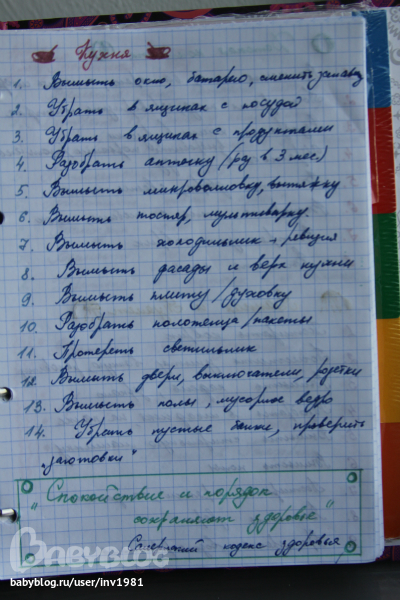 Кухня
1. Вымыть окно, батарею, сменить занавес
2. Убрать в ящиках с посудой
3. Убрать в ящиках с продуктами
4. Разобрать аптечку (раз в 3 мес.)
5. Вымыть микроволновку, вытяжку
6. Вымыть тостер, мультиварку.
7. Вымыть холодильник + ревизия
8. Вымыть фасады и верх кухни
9. Вымыть плиту/духовку
10. Разобрать полотенца/пакеты
11. Протереть светильник
12. Вымыть двери, выключатели, розетки
13. Вымыть полы, мусорное ведро
14. Убрать пустые банки, проверить
"заготовки"
"Спокойствие и порядок
сохраняют здоровье"
Салернский кодекс здоровья
BABYBLOG
babyblog.ru/user/inv1981